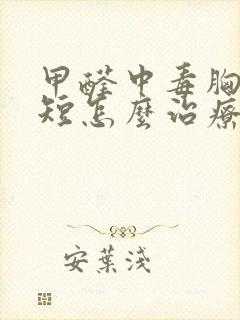 甲醛中毒胸
短怎麼治療
安葉淺